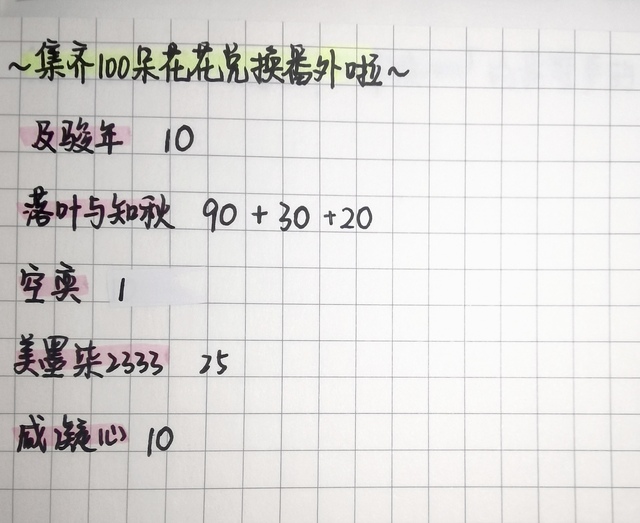 ~集齐100朵花花兑换番外啦~
及骏年 10
落叶与知秋 90 + 30 +20
空奕 1
美墨染2333 25
咸凝心 10